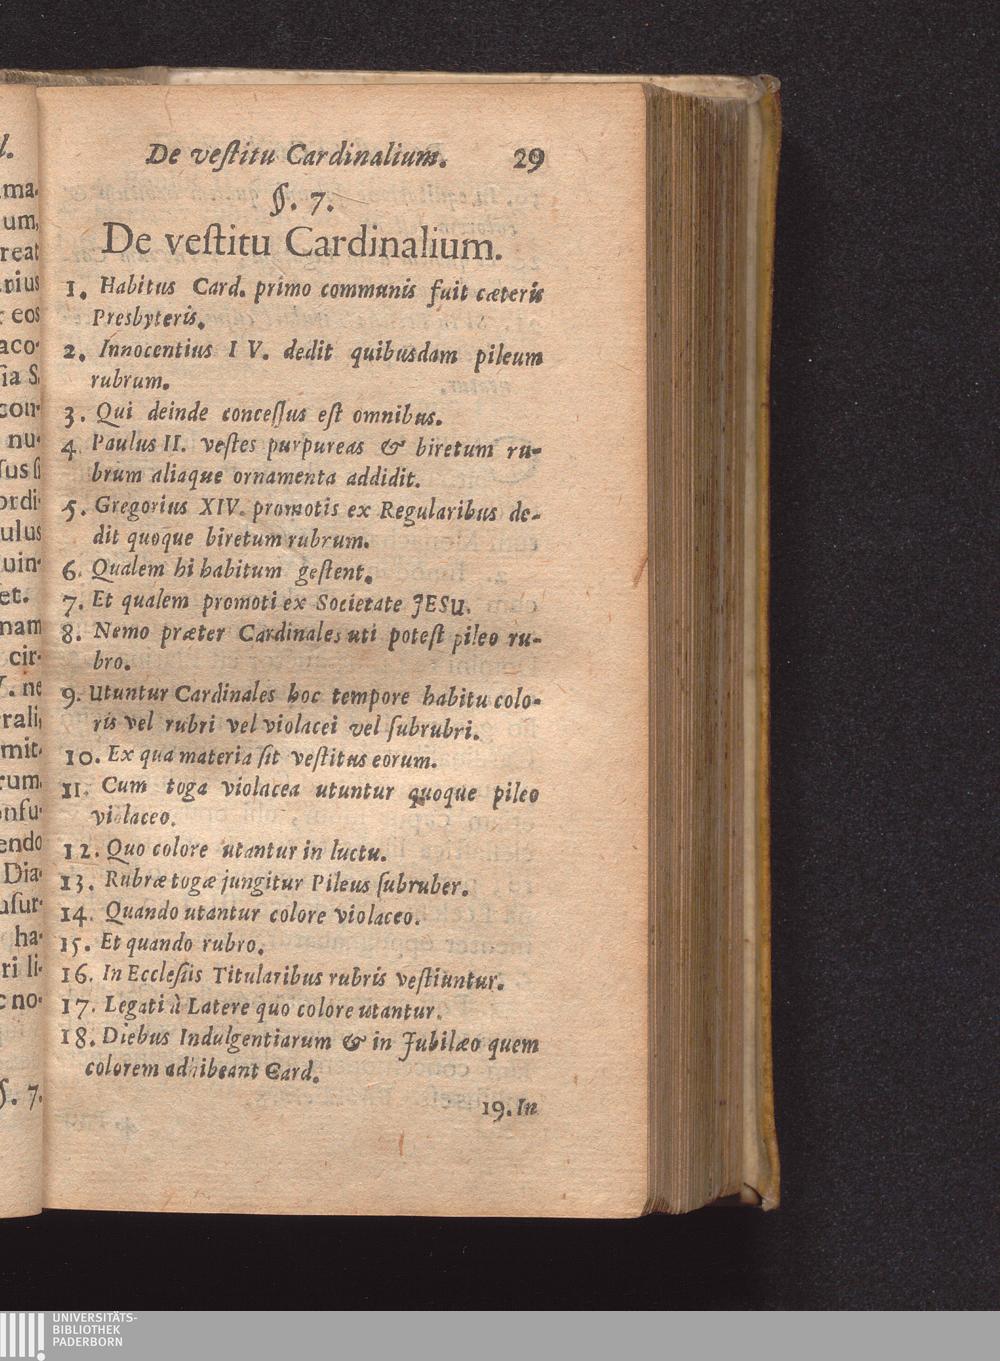 De vestitu Cardinalium. 29
§. 7.
De vestitu Cardinalium.
1. Habitus Card. primo communis fuit cæteris
Presbyteris.
2. Innocentius IV. dedit quibusdam pileum
rubrum.
3. Qui deinde concessus est omnibus.
4. Paulus II. vestes purpureas & biretum ru-
brum aliaque ornamenta addidit.
5. Gregorius XIV. promotis ex Regularibus de-
dit quoque biretum rubrum.
6. Qualem hi habitum gestent.
7. Et qualem promoti ex Societate JESU.
8. Nemo præter Cardinales uti potest pileo ru-
bro.
9. Utuntur Cardinales hoc tempore habitu colo-
ris vel rubri vel violacei vel subrubri.
10. Ex qua materia sit vestitus eorum.
11. Cum toga violacea utuntur quoque pileo
violaceo.
12. Quo colore utantur in luctu.
13. Rubræ togæ jungitur Pileus subruber.
14. Quando utantur colore violaceo.
15. Et quando rubro.
16. In Ecclesiis Titularibus rubris vestiuntur.
17. Legati à Latere quo colore utantur.
18. Diebus Indulgentiarum & in Jubilæo quem
colorem adhibeant Card.
19. In
l.
ma-
um,
reat
rius
eos
aco-
sia S.
con-
nu-
sus si
ordi-
ulus
uin-
et.
nam
cir-
V. ne
rali,
mit-
rum,
onsu-
endo
Dia-
usur-
ha-
ri li-
c no-
§. 7.
UNIVERSITÄTS-
BIBLIOTHEK
PADERBORN